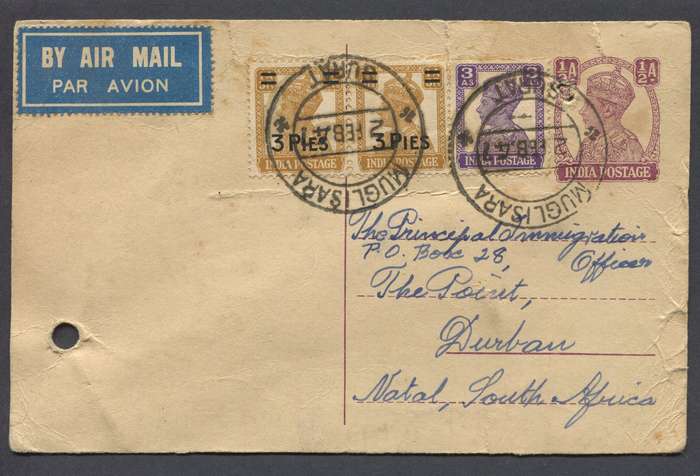 BY AIR MAIL
PAR AVION
3 PIES
INDIA POSTAGE
3 PIES
INDIA POSTAGE
3 AS
3 AS
INDIA POSTAGE
½A
½A
INDIA POSTAGE
SURAT
2 FEB.47
MUGLISARA
SURAT
FEB.47
MUGLISARA
The Principal Immigration
Officer
P.O. Box 28,
The Point,
Durban
Natal, South Africa